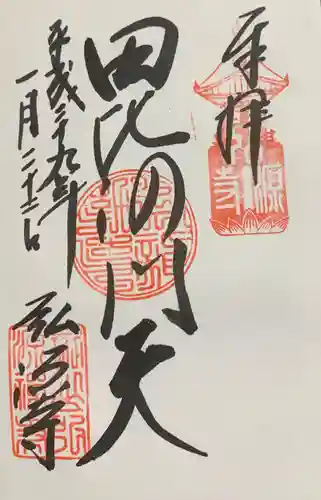 奉拝
毘沙門天
平成二十九年
一月二十二日
弘源寺